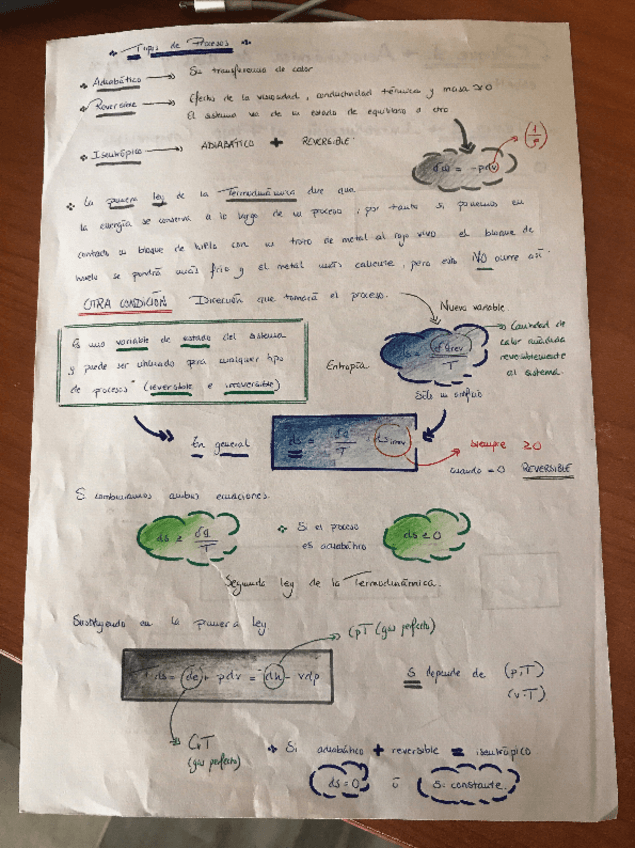 Tipos de Procesos
Adiabático → Sin transferencia de calor
Reversible → Efecto de la viscosidad, conductividad térmica y masa ≈0
El sistema va de un estado de equilibrio a otro
Isentrópico → ADIABÁTICO + REVERSIBLE
δw = -pdv (1/ρ)
La primera ley de la Termodinámica dice que
la energía se conserva a lo largo de un proceso, por tanto si ponemos en
contacto un bloque de hielo con un trozo de metal al rojo vivo el bloque de
hielo se pondrá más frío y el metal más caliente, pero esto NO ocurre así
OTRA CONDICIÓN Dirección que tomará el proceso.
Nueva variable.
Es una variable de estado del sistema
y puede ser utilizado para cualquier tipo
de procesos" (reversible e irreversible)
Entropía
ds = δqrev/T
→ Cantidad de
calor añadida
reversiblemente
al sistema.
Sólo un
En general
ds = δq/T dsirrev
siempre ≥0
cuando =0 REVERSIBLE
Si combinamos ambas ecuaciones.
ds ≥ δq/T
Si el proceso
es adiabático
ds ≥ 0
Segunda ley de la Termodinámica.
Sustituyendo en la primera ley
CpT (gas perfecto)
T ds = de + pdv = dh - vdp
S depende de (p,T)
(v,T)
CvT
(gas perfecto)
Si adiabático + reversible = isentrópico
ds=0 ó S= constante.